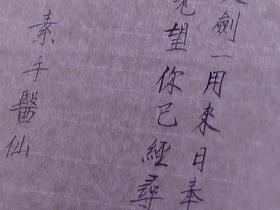 劍一用來日奉
望你已經尋
素手醫仙